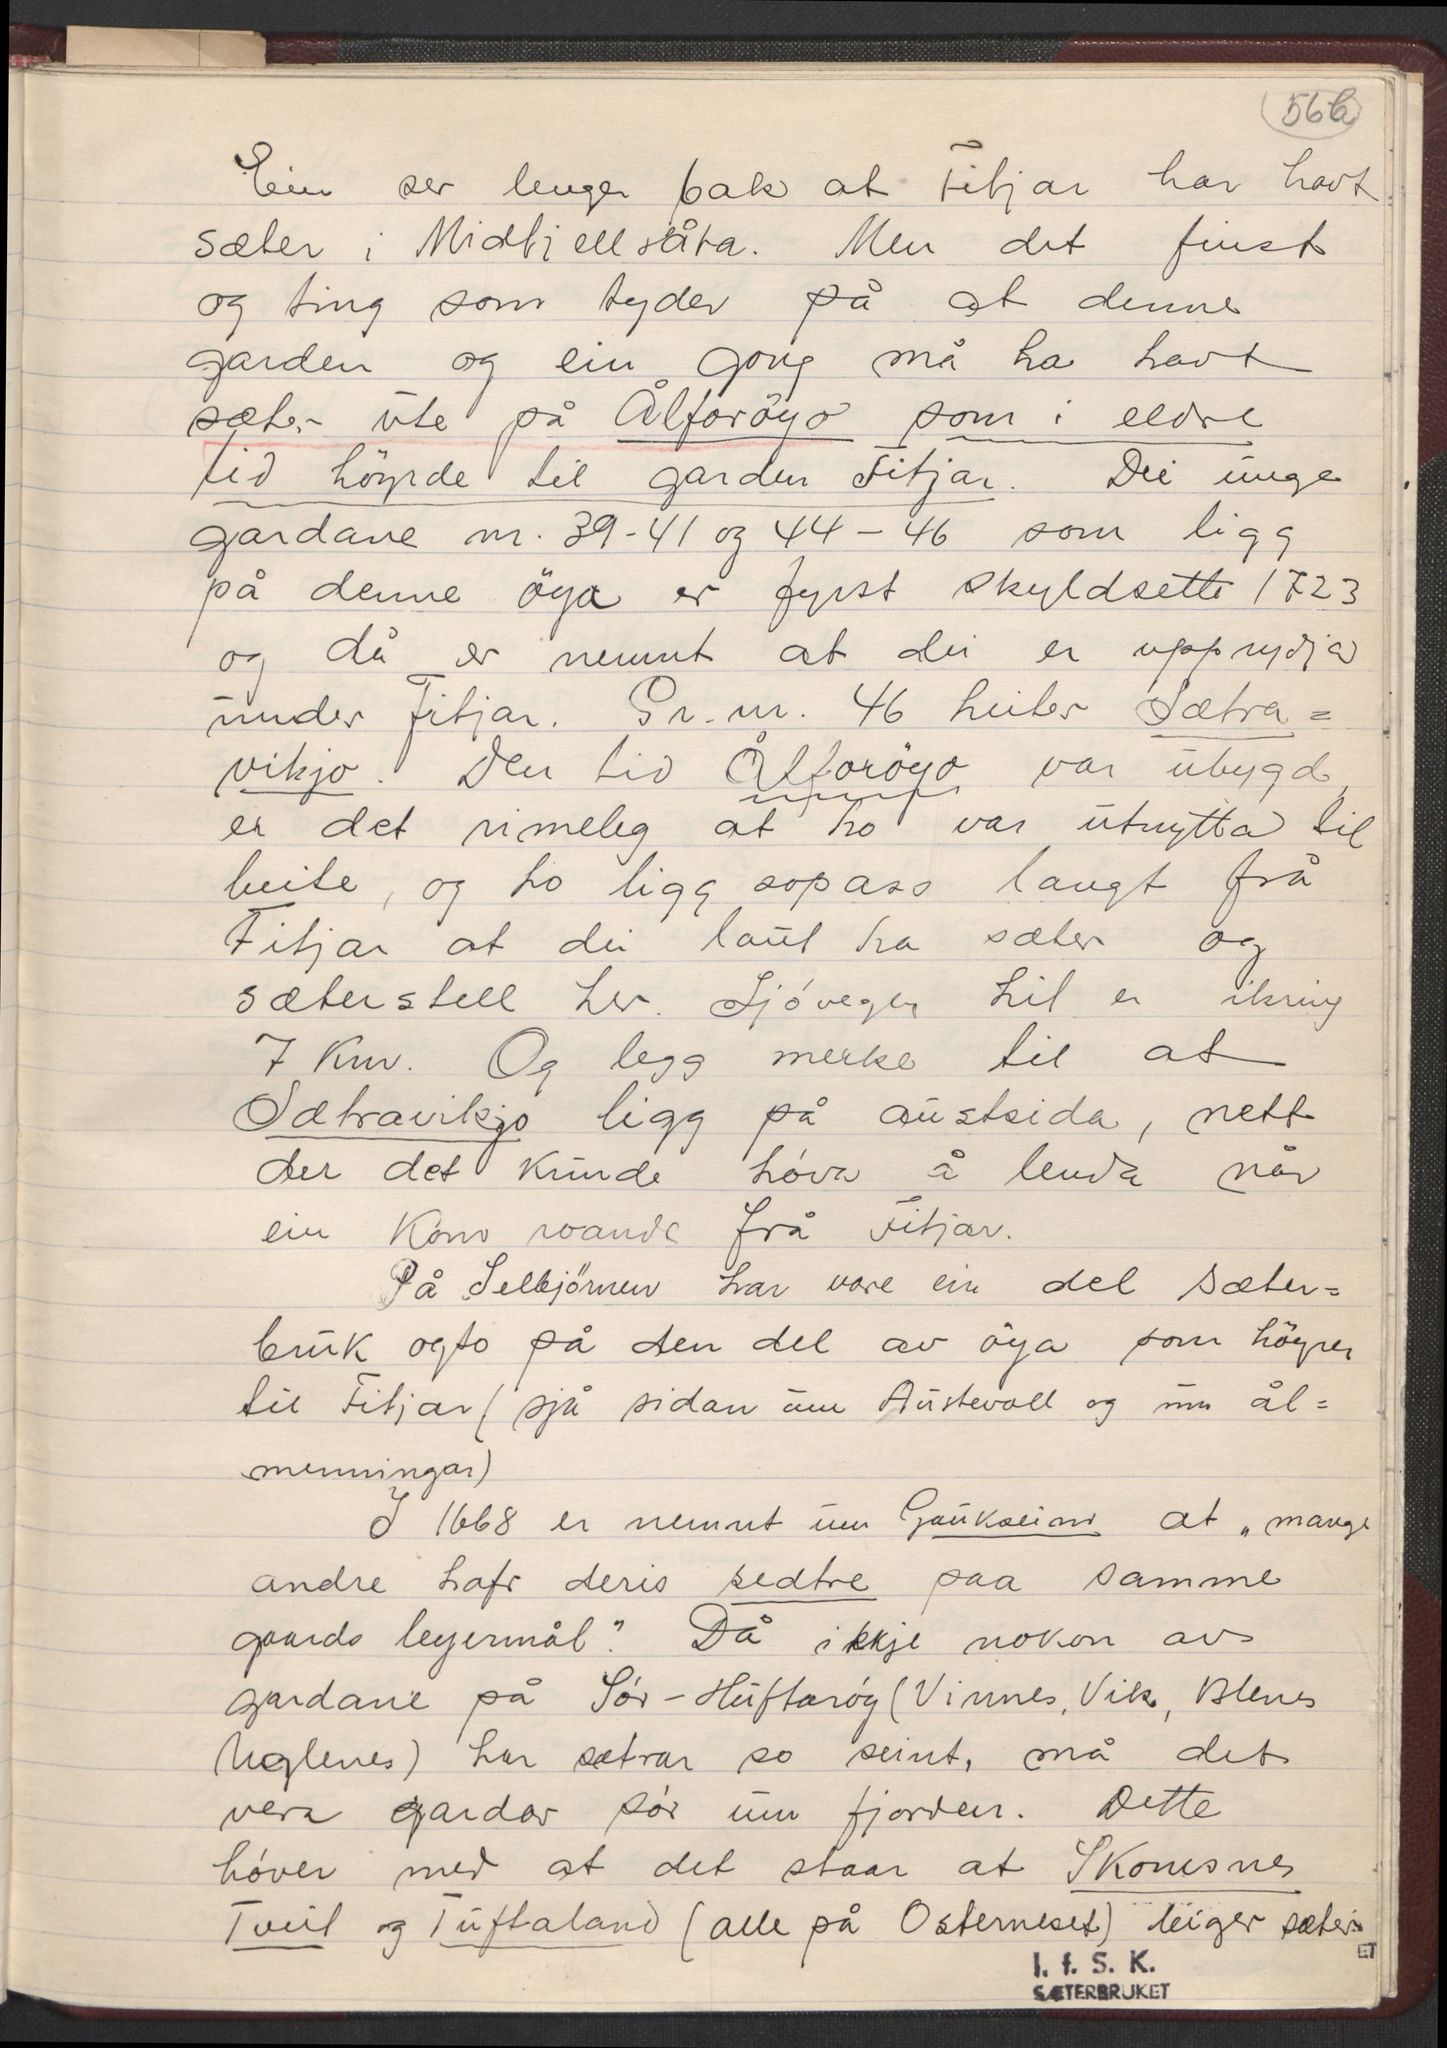 56b
Ein ser lenger bak at Fitjar har havt
sæter i Midtfjellsåta. Men det finst
og ting som tyder på at denne
garden og ein gong må ha havt
sæter ute på Ålforöyo som i eldre
tid höyrde til garden Fitjar. Dei unge
gardane nr. 39-41 og 44-46 som ligg
på denne öya er fyrst skyldsette 1723
og då er nemnt at dei er upprydja
under Fitjar. Gr. nr. 46 heiter Sætra=
vikjo. Den tid Ålforöyo var ubygd,
er det rimeleg at ho var utnytta til
beite, og ho ligg sopass langt frå
Fitjar at dei laut ha sæter og
sæterstell her. Sjóvegen hit er ikring
7 Km. Og legg merke til at
Sætravikjo ligg på austsida, nett
der det kunde hóva å lenda når
ein kom roande frå Fitjar.
På Selbjörnen har vore ein del sæter=
bruk ogso på den del av öya som höyrer
til Fitjar (sjå sidan um Austevoll og um ål=
menningar)
I 1668 er nemnt um Gaukseim at „mange
andre hafr deris sedtre paa samme
gaards leyermål." Då ikkje nokon av
gardane på Sór-Huftaróy (Vinnes, Vik, Blenes
Uglenes) har sætrar so seint, må det
vera gardar sór um fjorden. Dette
hóver med at det staar at Skonesnes
Tveit og Tuftaland (alle på Osterneset) leiger sæter
I. f. S. K.
SÆTERBRUKET
ET